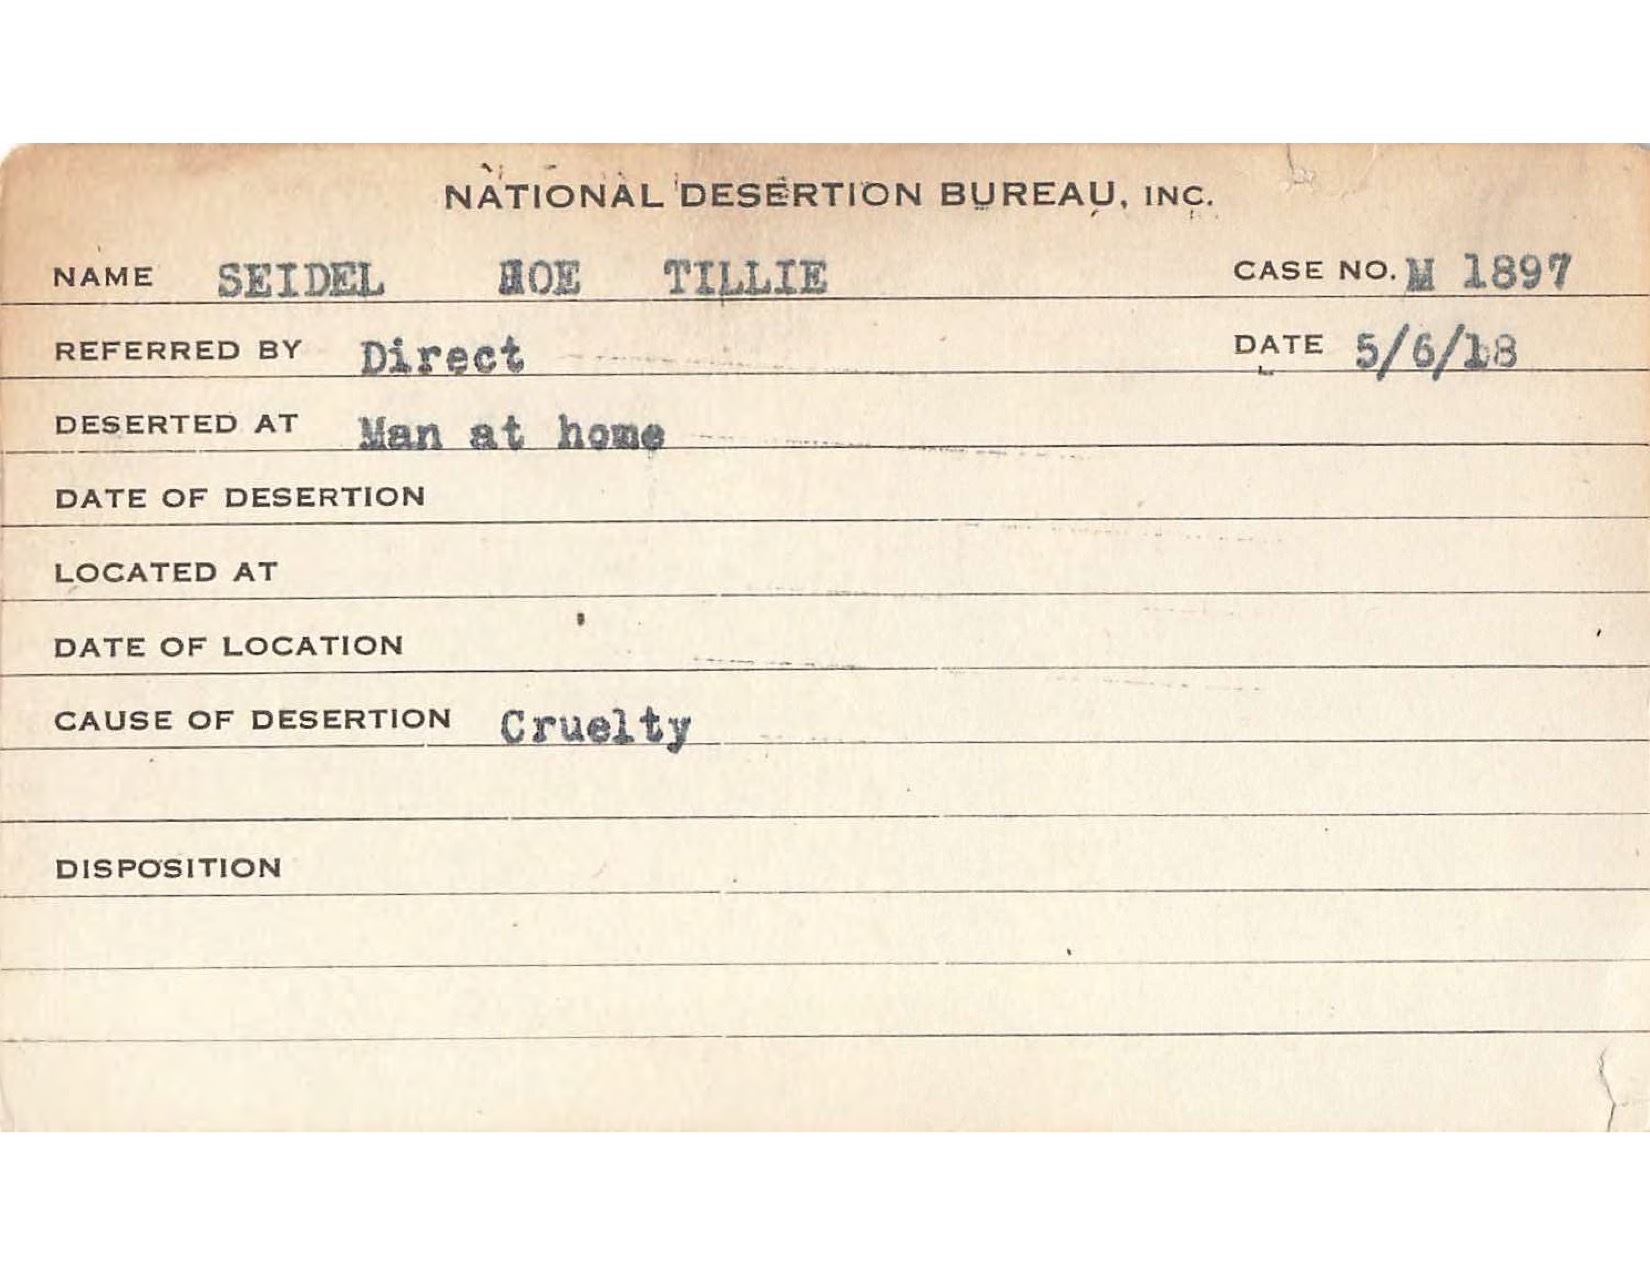 NATIONAL DESERTION BUREAU, INC.
NAME SEIDEL MOE TILLIE CASE NO. M 1897
REFERRED BY Direct DATE 5/6/18
DESERTED AT Man at home
DATE OF DESERTION
LOCATED AT
DATE OF LOCATION
CAUSE OF DESERTION Cruelty
DISPOSITION